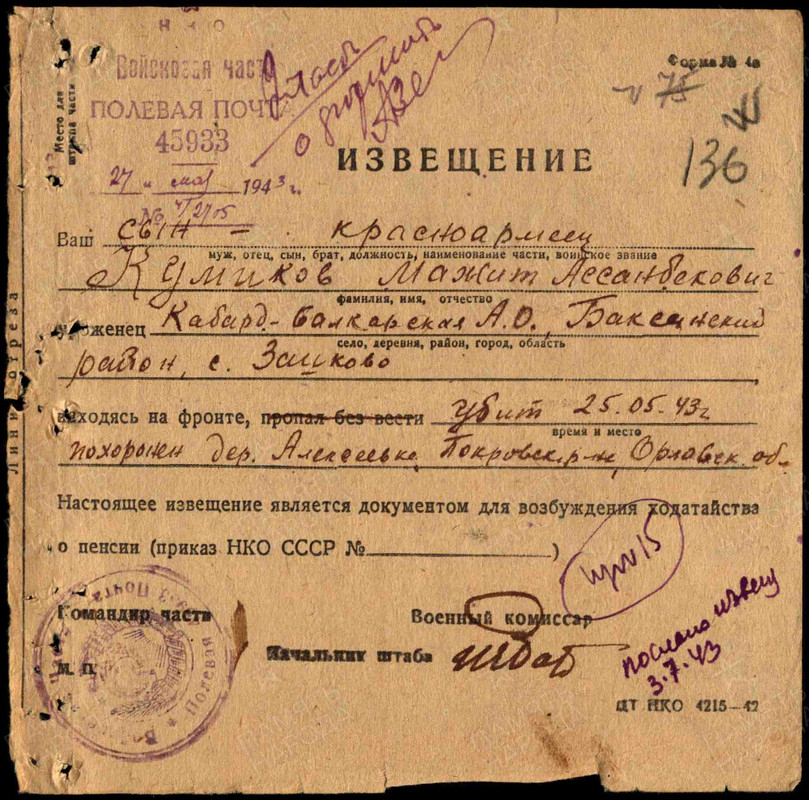 Войсковая часть
ПОЛЕВАЯ ПОЧТА
45933
27 " мая 1943 г.
№ 4/2705
Место для штампа части
Форма № 4а
75
136
ИЗВЕЩЕНИЕ
Ваш сын - красноармеец
муж, отец, сын, брат, должность, наименование части, воинское звание
Кумыков Мажит Ассанбекович
фамилия, имя, отчество
уроженец Кабард-Балкарская А.О., Баксанский
село, деревня, район, город, область
район, с. Заюково
Линия отреза
находясь на фронте, пропал без вести убит 25.05.43г
время и место
похоронен дер. Алексеевка Покровск. р-н, Орловск. об.
Настоящее извещение является документом для возбуждения ходатайства
о пенсии (приказ НКО СССР № )
Командир части
Военный комиссар
М. П.
Начальник штаба
послано извещ
3.7.43
ЦТ НКО 4215-42